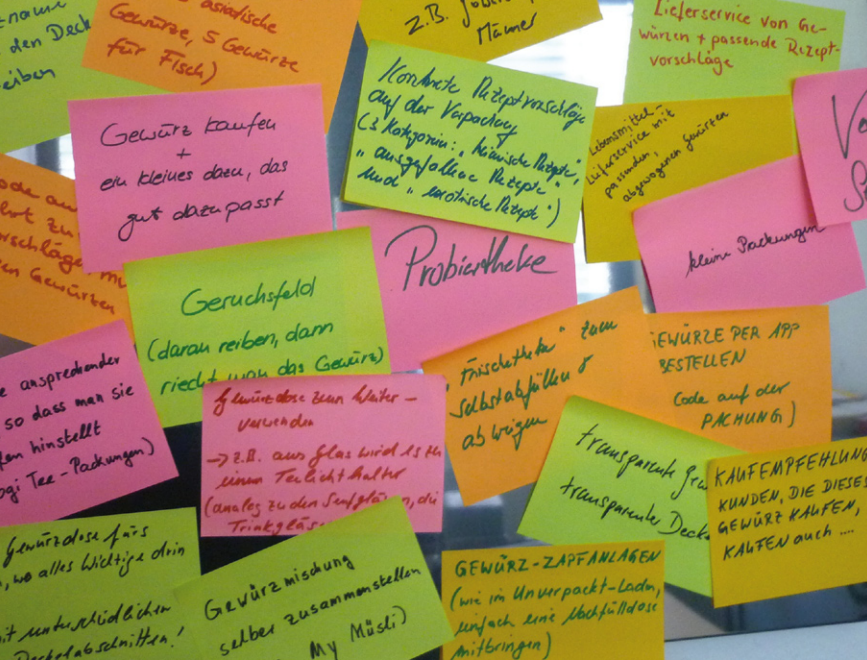 den Deck
eiben
asiatische
Gewürze, 5 Gewürze
für Fisch)
z.B.
Männer
Lieferservice von Ge-
würzen + passende Rezept-
vorschläge
Gewürz kaufen
+
ein kleines dazu, das
gut dazu passt
Konkrete Rezeptvorschläge
auf der Verpackung
(3 Kategorien: „heimische Rezepte",
„ausgefallene Rezepte"
und „exotische Rezepte")
Lebensmittel-
Lieferservice mit
passenden,
abgewogenen Gewürzen
kleine Packungen
Gewürzen
Geruchsfeld
(daran reiben, dann
riecht man das Gewürz)
Probiertheke
„Frischetheke" zum
Selbstabfüllen &
abwiegen
GEWÜRZE PER APP
BESTELLEN
Code auf der
PACHUNG)
e ansprechender
so dass man sie
fen hinstellt
ogi Tee-Packungen)
Gewürzdose zum Weiter-
verwenden
-> z.B. aus Glas wird es zu
einem Teelichthalter
(analog zu den Senfgläsern, die
Trinkgläs
transparente Gew
transparenter Decke
KAUFEMPFEHLUNG
KUNDEN, DIE DIESES
GEWÜRZ KAUFEN,
KAUFEN auch ....
Gewürzdose fürs
, wo alles Wichtige drin
mit unterschiedlichen
Deckelabschnitten!
Gewürzmischung
selber zusammenstellen
My Müsli)
GEWÜRZ-ZAPFANLAGEN
(wie im Unverpackt-Laden,
einfach eine Nachfülldose
mitbringen)